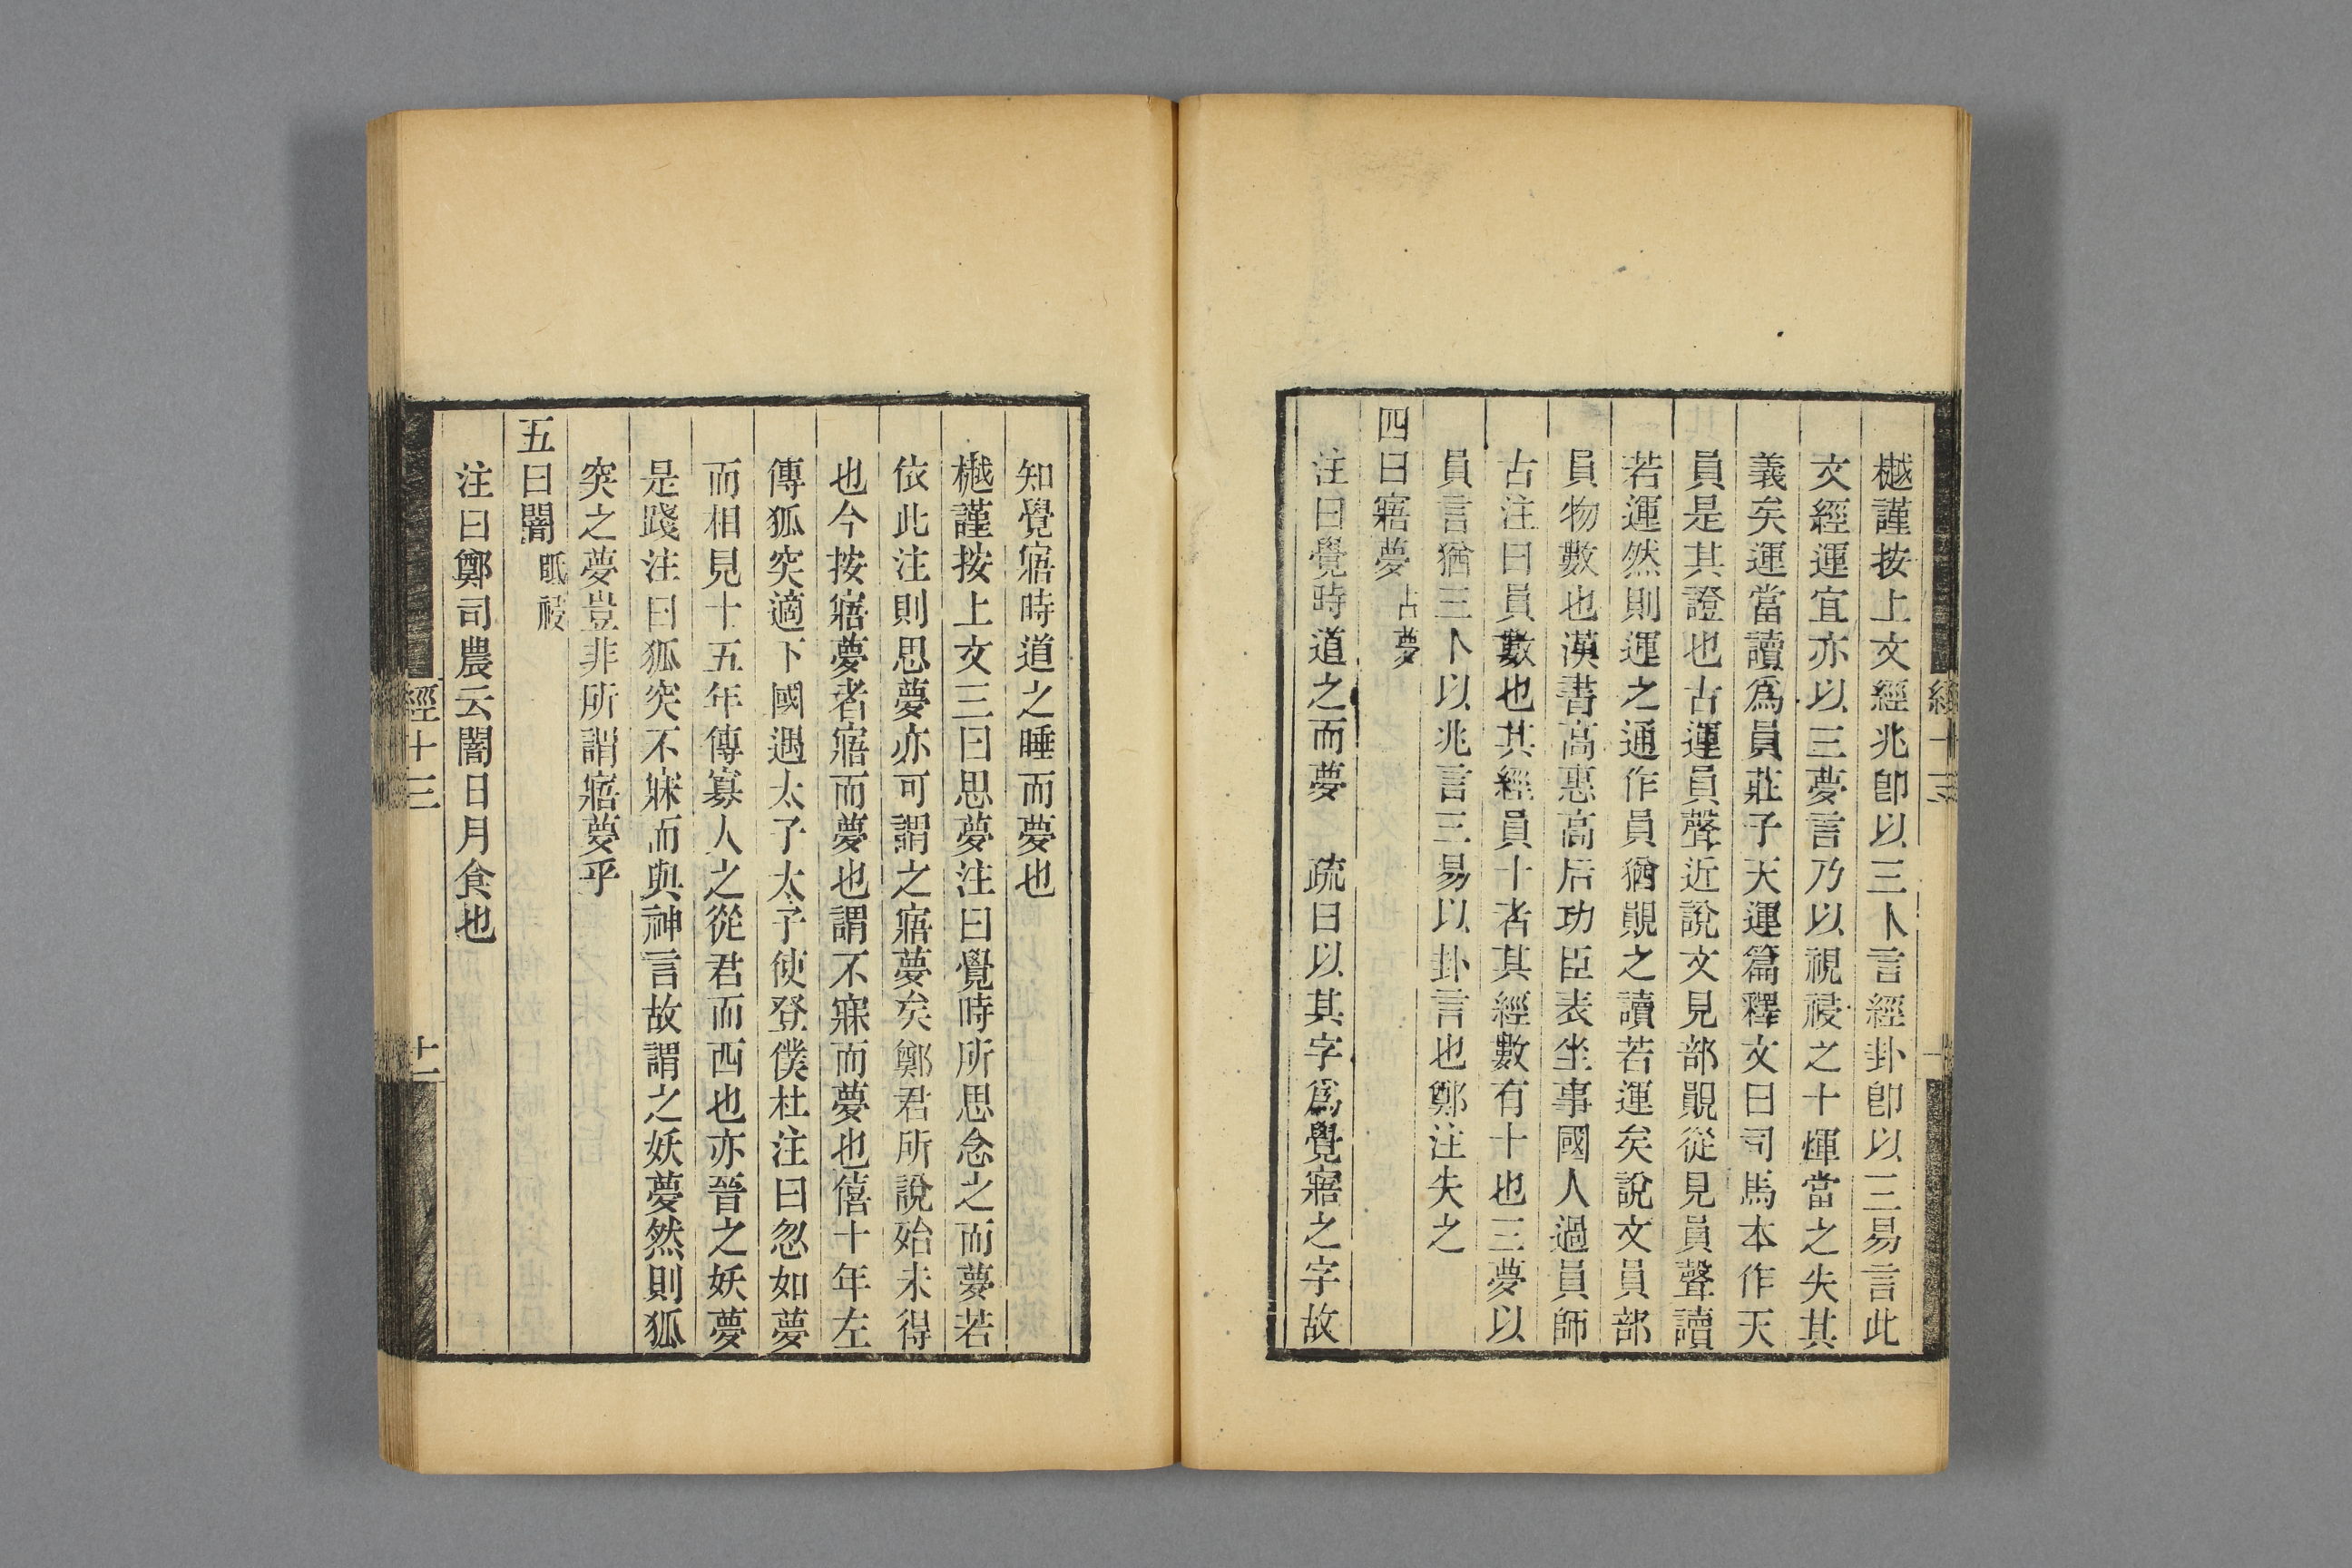 樾謹按上文經兆卽以三卜言經卦卽以三易言此
文經運宜亦以三夢言乃以視祲之十煇當之失其
義矣運當讀爲員莊子天運篇釋文曰司馬本作天
員是其證也古運員聲近說文見部覞從見員聲讀
若運然則運之通作員猶覞之讀若運矣說文員部
員物數也漢書高惠高后功臣表坐事國人過員師
古注曰員數也其經員十者其經數有十也三夢以
員言猶三卜以兆言三易以卦言也鄭注失之
四曰寤夢 占夢
注曰覺時道之而夢 疏曰以其字爲覺寤之字故
經十三
知覺寤時道之睡而夢也
樾謹按上文三曰思夢注曰覺時所思念之而夢若
依此注則思夢亦可謂之寤夢矣鄭君所說殆未得
也今按寤夢者寤而夢也謂不寐而夢也僖十年左
傳狐突適下國遇太子太子使登僕杜注曰忽如夢
而相見十五年傳寡人之從君而西也亦晉之妖夢
是踐注曰狐突不寐而與神言故謂之妖夢然則狐
突之夢豈非所謂寤夢乎
五曰闇 眡祲
注曰鄭司農云闇日月食也
經十三
十一